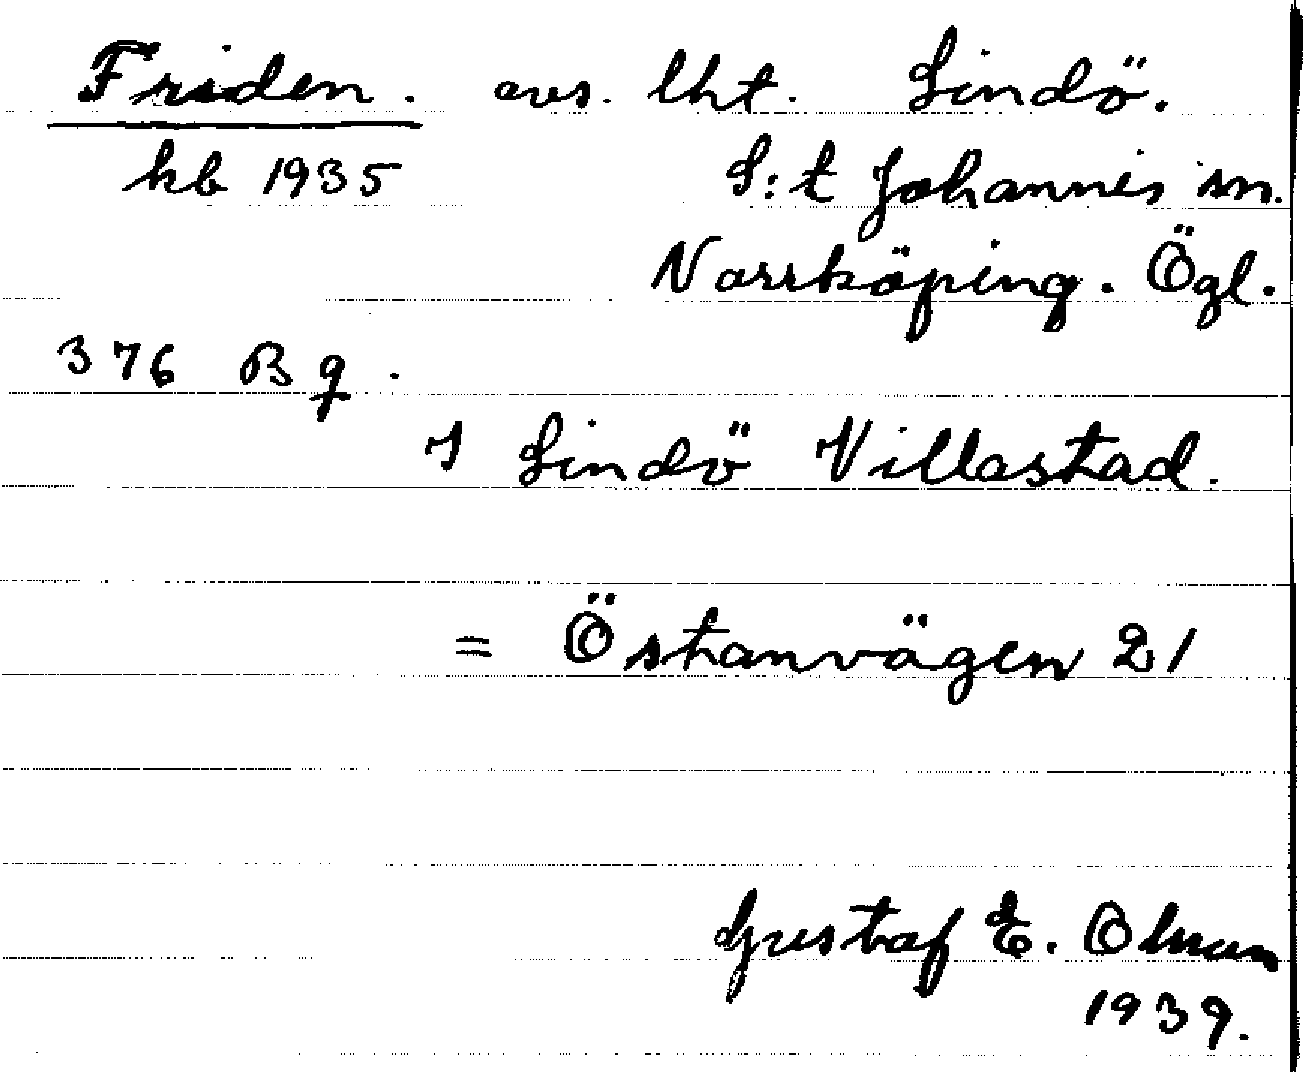 Friden. avs. lht. Lindö.
kb 1935 S:t Johannis sn.
Norrköping. Ögl.
376 Bq.
I Lindö Villastad.
= Östanvägen 21
Gustaf E. Olman
1939.